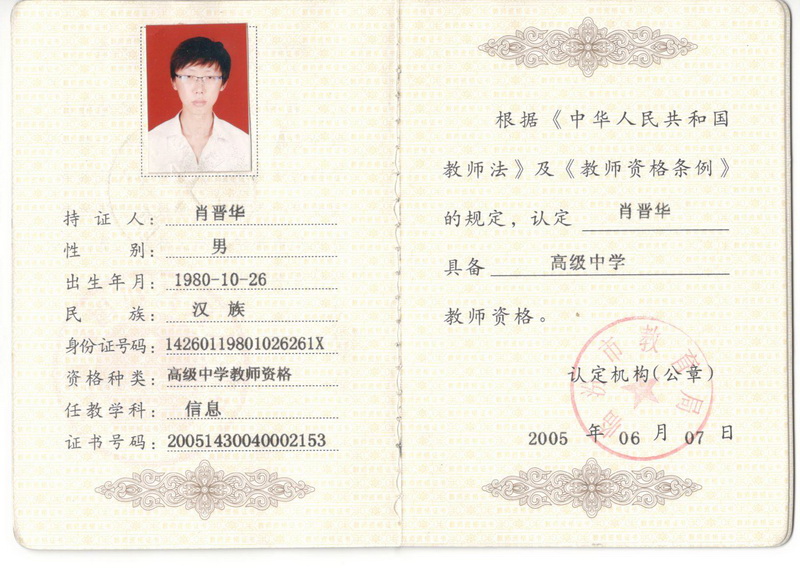 持证人：肖晋华
性别：男
出生年月：1980-10-26
民族：汉 族
身份证号码：14260119801026261X
资格种类：高级中学教师资格
任教学科：信息
证书号码：20051430040002153
根据《中华人民共和国
教师法》及《教师资格条例》
的规定，认定 肖晋华
具备 高级中学
教师资格。
临汾市教育局
认定机构(公章)
2005 年 06 月 07 日